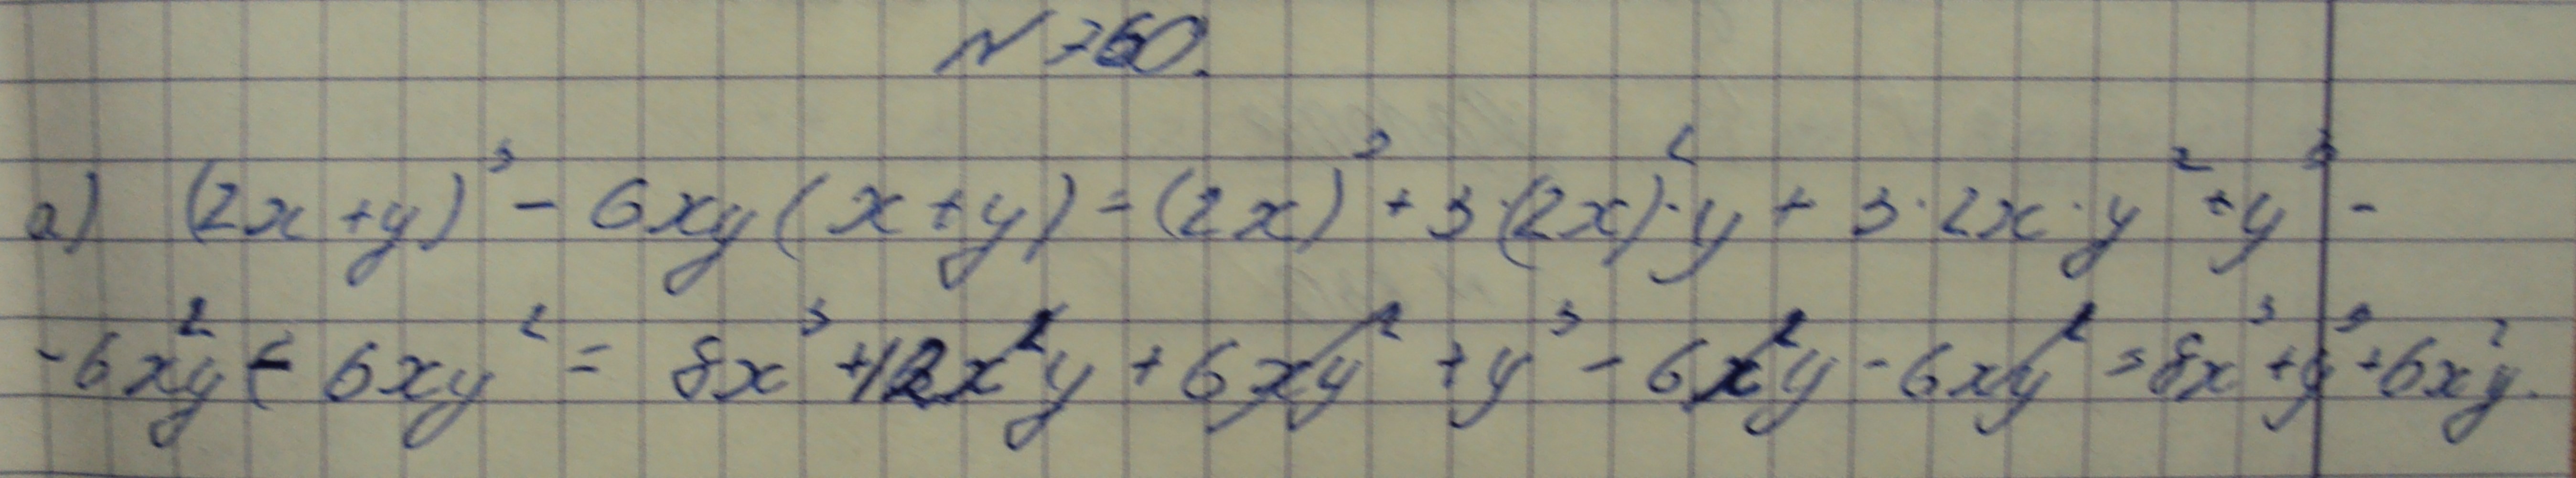 № 760.
а) (2x+y)³ - 6xy(x+y) = (2x)³ + 3·(2x)²·y + 3·2x·y² + y³ -
-6x²y - 6xy² = 8x³ + 12x²y + 6xy² + y³ - 6x²y - 6xy² = 8x³ + y³ + 6x²y.